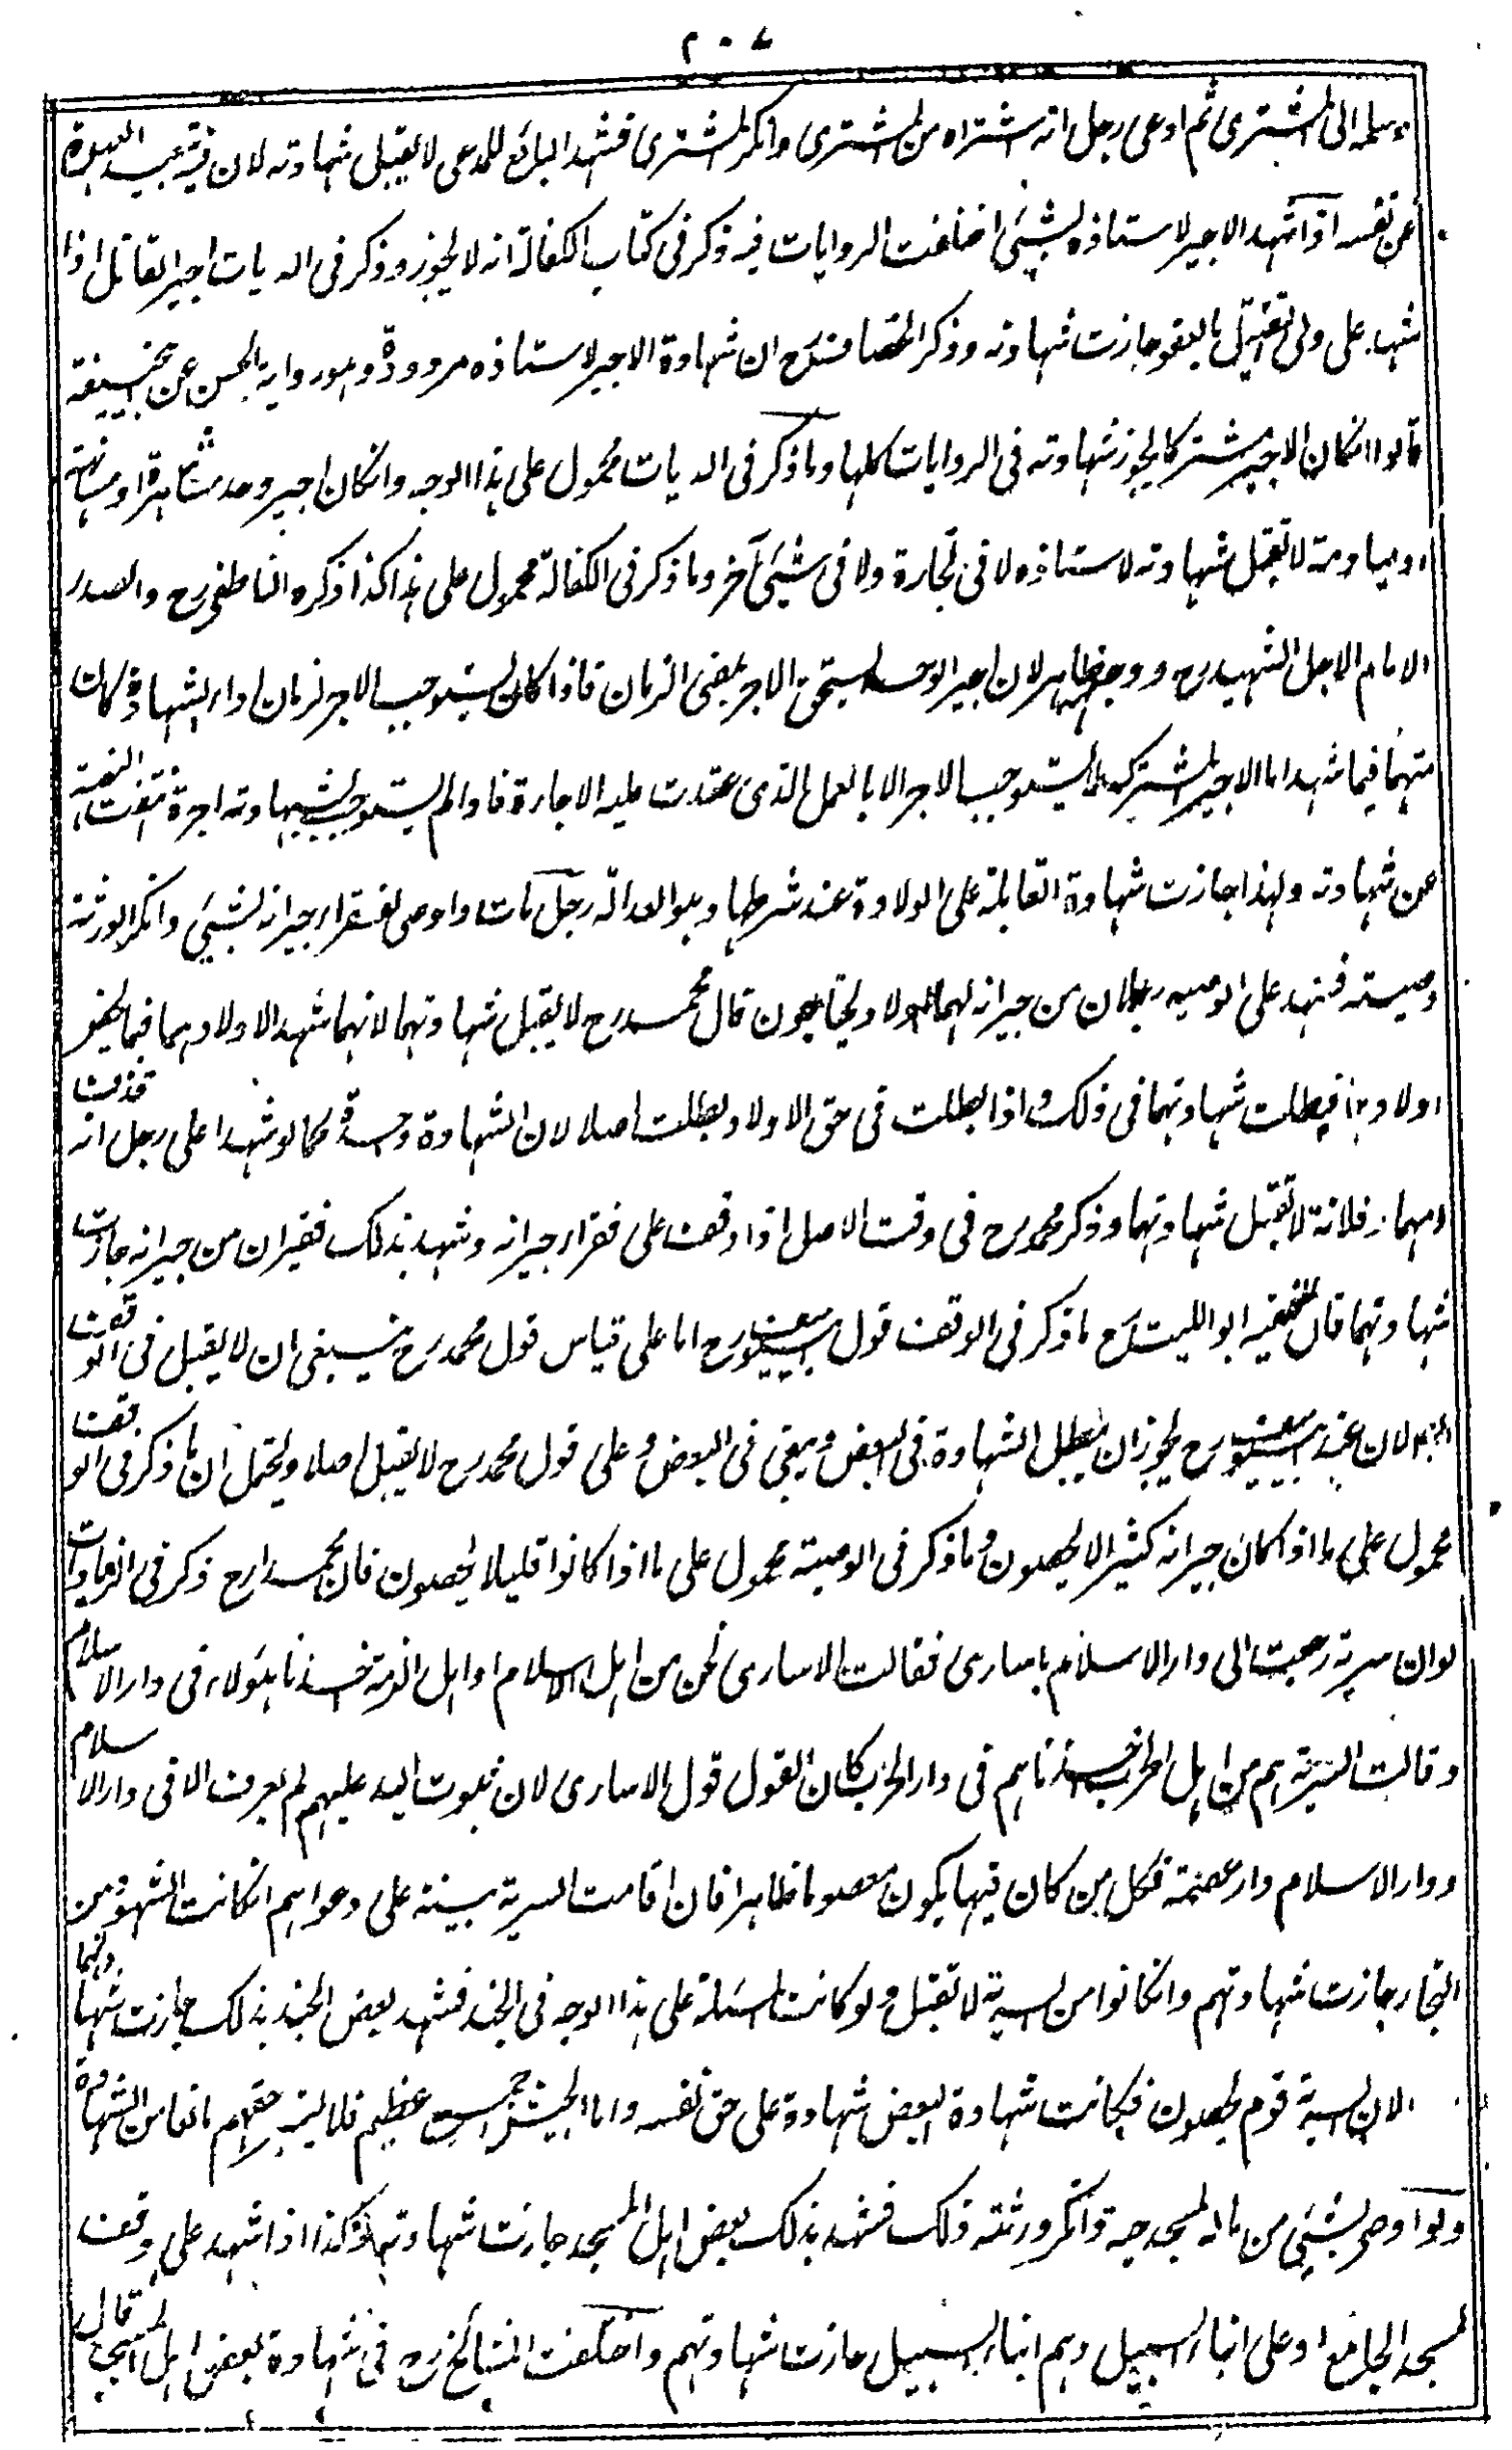 ٢٠٧
وسلمه الى المشترى ثم ادعى رجل انه اشتراه من المشترى وانكر المشترى فشهد البائع للمدعى لا يقبل شهادته لان فيه تبعيد العهدة
عن نفسه اذا شهد الاجير لاستاذه بشيء اختلفت الروايات فيه ذكر فى كتاب الكفالة انه لا يجوز وذكر فى الديات اجير القاتل اذا
شهد على ولى القتيل بالعفو جازت شهادته وذكر الخصاف رح ان شهادة الاجير لاستاذه مردودة وهو رواية الحسن عن ابيحنيفة
قالوا انكان الاجير مشتركا يجوز شهادته فى الروايات كلها وما ذكر فى الديات محمول على هذا الوجه وانكان اجير وحد مشاهرة او مسانهة
او مياومة لا تقبل شهادته لاستاذه لا فى تجارة ولا فى شيء آخر وما ذكر فى الكفالة محمول على هذا كذا ذكره الناطفى رح والصدر
الامام الاجل الشهيد رح ووجهه ظاهر لان اجير الوحد يستحق الاجر بمضى الزمان فاذا كان يستوجب الاجر لزمان اداء الشهادة كان
متهما فيما شهد اما الاجير المشترك لا يستوجب الاجر الا بالعمل الذى عقدت عليه الاجارة فاذا لم يستوجب بشهادته اجرة انتفت التهمة
عن شهادته ولهذا جازت شهادة القابلة على الولادة عند شرطها وهو العدالة رجل مات واوصى لفقراء جيرانه بشيء وانكر الورثة
وصيته فشهد على الوصية رجلان من جيرانه لهما اولاد محتاجون قال محمد رح لا يقبل شهادتهما لانهما شهدا لاولادهما فيما يخص
اولادهما فبطلت شهادتهما فى ذلك واذا بطلت فى حق الاولاد بطلت اصلا لان الشهادة واحدة كما لو شهدا على رجل انه قذف
امهما وفلانة لا تقبل شهادتهما وذكر محمد رح فى وقف الاصل اذا وقف على فقراء جيرانه وشهد بذلك فقيران من جيرانه جازت
شهادتهما قال الفقيه ابو الليث رح ما ذكر فى الوقف قول ابييوسف رح اما على قياس قول محمد رح ينبغى ان لا يقبل فى الوقف
ايضا لان عند ابييوسف رح يجوز ان يبطل الشهادة فى البعض ويبقى فى البعض وعلى قول محمد رح لا يقبل اصلا ويحتمل ان ما ذكر فى الوقف
محمول على ما اذا كان جيرانه كثيرا لا يحصون وما ذكر فى الوصية محمول على ما اذا كانوا قليلا يحصون فان محمدا رح ذكر فى الزيادات
لو ان سرية رجعت الى دار الاسلام باسارى فقالت الاسارى نحن من اهل الاسلام او اهل الذمة اخذنا هؤلاء فى دار الاسلام
وقالت السرية هم من اهل الحرب اخذناهم فى دار الحرب كان القول قول الاسارى لان ثبوت اليد عليهم لم يعرف الا فى دار الاسلام
ودار الاسلام دار عصمة فكل من كان فيها يكون معصوما ظاهرا فان اقامت السرية بينة على دعواهم انكانت الشهود من
التجار جازت شهادتهم وانكانوا من السرية لا تقبل ولو كانت المسئلة على هذا الوجه فى الجند فشهد بعض الجند بذلك جازت شهادتهما
لان السرية قوم يحصون فكانت شهادة البعض شهادة على حق نفسه واما الجيش جمع عظيم فلا يعتبر حقهم مانعا من الشهادة
ولو اوصى بشيء من ماله لمسجد حيه وانكر ورثته ذلك فشهد بذلك بعض اهل المسجد جازت شهادتهم وكذا اذا شهد على وقف
لمسجد الجامع او على ابناء السبيل وهم ابناء السبيل جازت شهادتهم واختلفت المشائخ رح فى شهادة بعض اهل المسجد قال